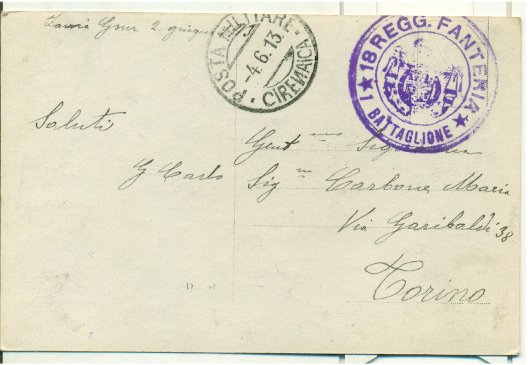 2 giugno 1913
POSTA MILITARE
-4.6.13.
CIRENAICA
18 REGG. FANTERIA
I BATTAGLIONE
Saluti
G Carlo
Gent.ma Signorina
Sig.na Carbone Maria
Via Garibaldi 38
Torino